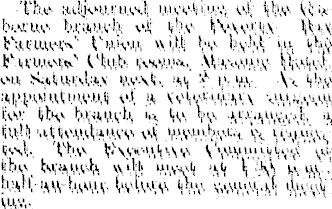 The adjourned meeting of the Gis-
borne branch of the Poverty Bay
Farmers' Union will be held in the
Farmers' Club rooms, Masonic Hotel,
on Saturday next, at 2 p.m. As the
appointment of a secretary
for the branch is to be arranged, a
full attendance of members is reques-
ted. The Executive Committee of
the branch will meet at 1.30 p.m.,
half-an-hour before the general meet-
ing.